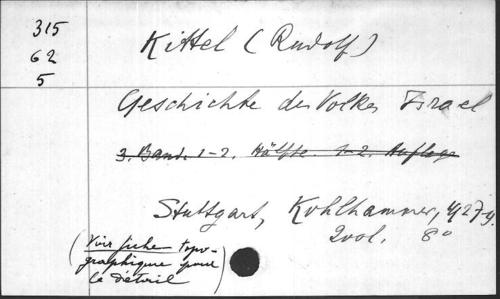 315
62
5
Kittel (Rudolf)
Geschichte des Volkes Israel
3. Band. 1-2. Hälfte. 1-2. Auflage
Stuttgart, Kohlhammer,
2 vol. 8°
(Voir fiche topo-
graphique pour
le détail